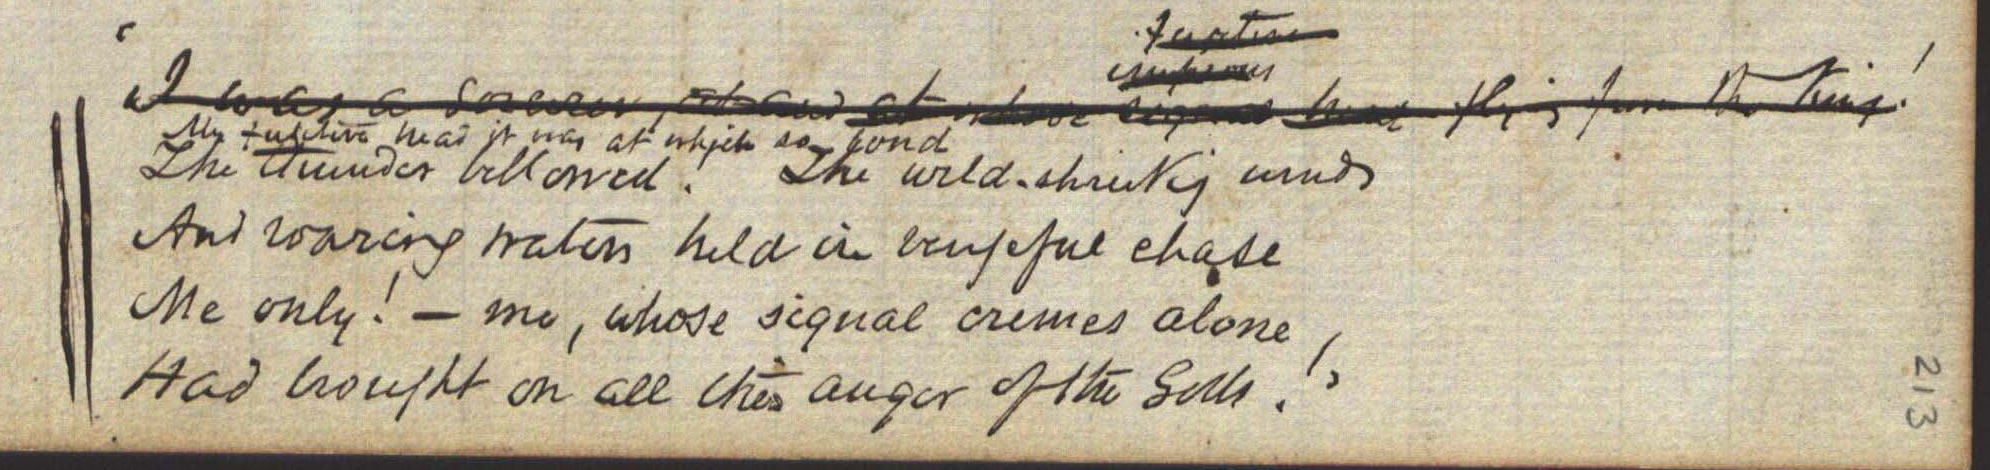 I was a sorcerer at whose signal flying from the King!
My fugitive head it was at which so fond
The thunder bellowed! The wild-shrieking winds
And roaring waters held in vengeful chase
Me only! — me, whose signal crimes alone
Had brought on all this anger of the Gods!
213